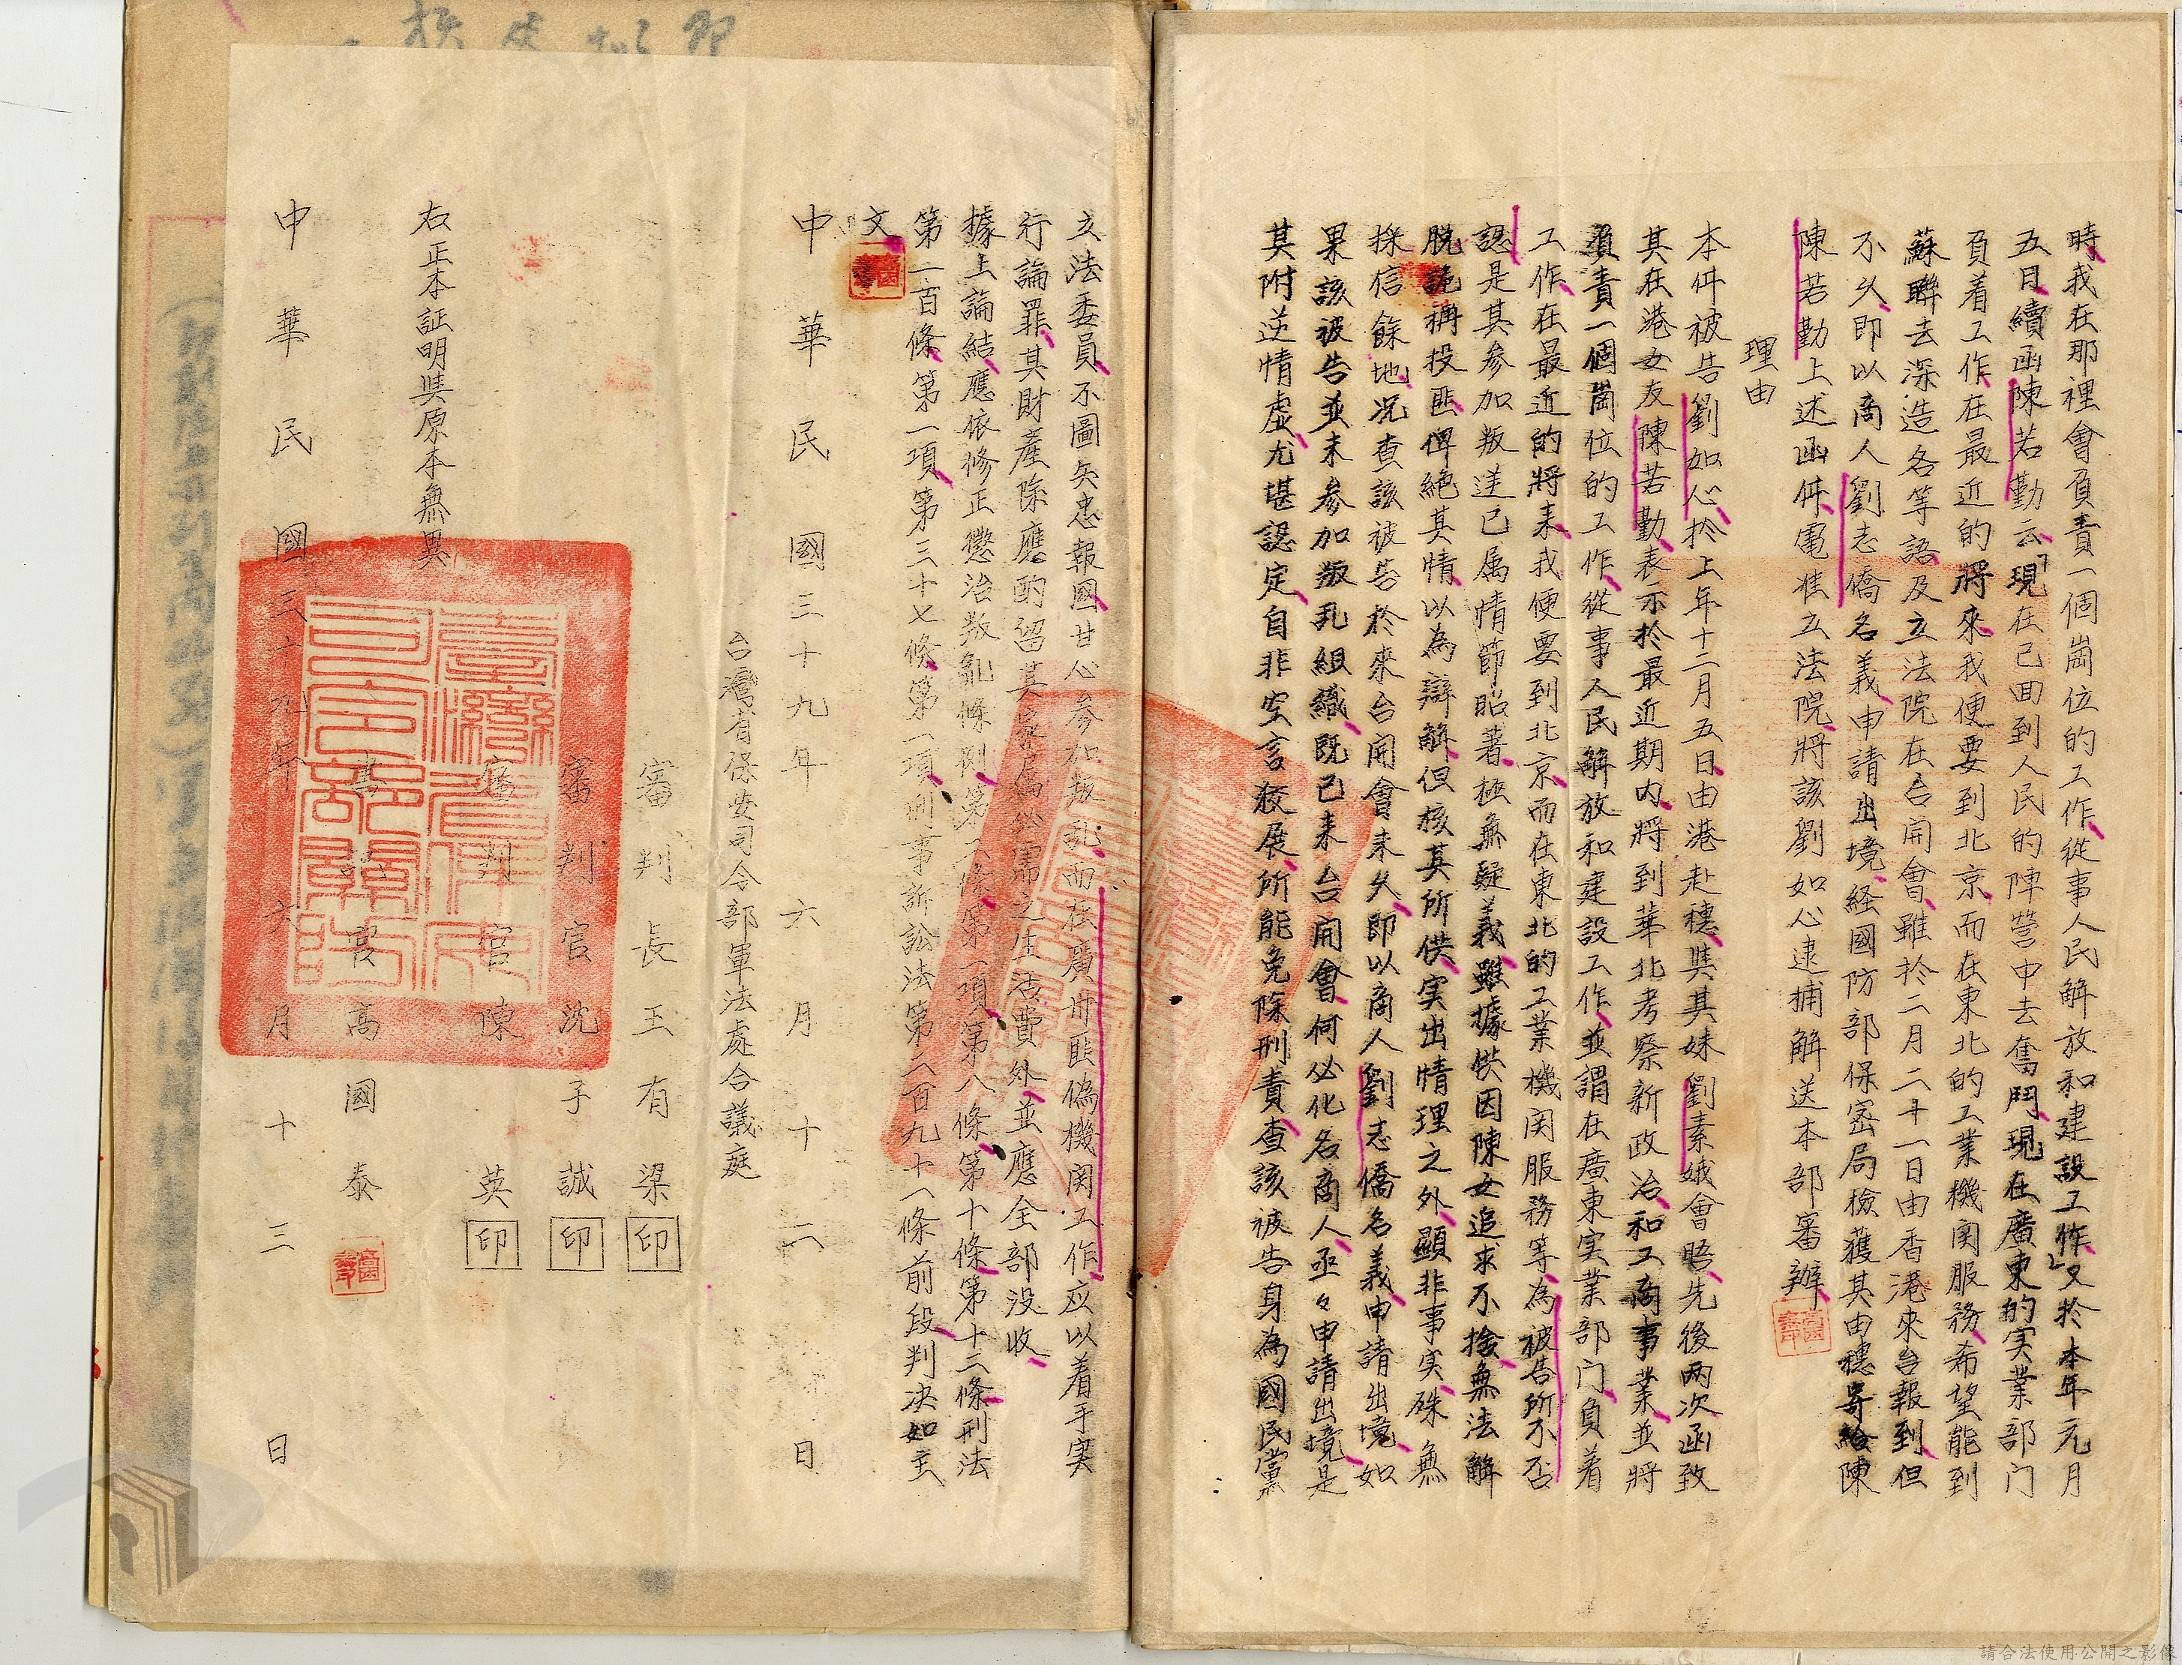 時我在那裡會負責一個崗位的工作、從事人民解放和建設工作、又於本年元月
五日續函陳若勤云、現在已回到人民的陣營中去奮鬥、現在廣東的实業部门
負着工作、在最近的將來、我便要到北京、而在東北的工業機関服務、希望能到
蘇聯去深造各等語及立法院在台開會、雖於二月二十一日由香港來台報到、但
不久、即以商人劉志僑名義、申請出境、経國防部保密局檢獲其由穗寄給陳
陳若勤上述函件、電准立法院、將該劉如心逮捕解送本部審辦、
理由
本件被告劉如心、於上年十二月五日、由港赴穗、與其妹劉素娥會晤、先後两次函致
其在港女友陳若勤、表示於最近期内、將到華北考察新政治、和工商事業、並將
負責一個崗位的工作、從事人民解放和建設工作、並謂在廣東实業部门、負着
工作、在最近的將来、我便要到北京、而在東北的工業機関服務等、為被告所不否
認是其参加叛逆已属情節昭著、極無疑義、雖據供因陳女追求不捨、無法解
脱、詭稱投匪、俾絕其情、以為辯解、但核其所供、实出情理之外、顯非事实、殊無
採信餘地、況查該被告於來台開會未久、即以商人劉志僑名義、申請出境、如
果該被告並未参加叛乱組織、既已来台開會、何必化名商人、亟々申請出境、是
其附逆情虚、尤堪認定、自非空言狡展、所能免除刑責、查該被告身為國民黨
立法委員、不圖矢忠報國、甘心参加叛乱、而在廣州匪偽機関工作、应以着手实
行論罪、其財產除應酌留其家属必需之生活費外、並應全部没收、
據上論結、應依修正懲治叛亂條例、第二條、第一項、第八條、第十條、第十二條、刑法
第二百條、第一項、第三十七條、第一項、刑事訴訟法第二百九十一條前段、判决如主
文
中華民國三十九年六月十二日
台灣省保安司令部軍法處合議庭
審判長王有梁印
審判官沈子誠印
審判官陳英印
右正本証明與原本無異
書記官高國泰
中華民國三十九年六月十三日
臺灣省保安司令部關防
請合法使用公開之影像